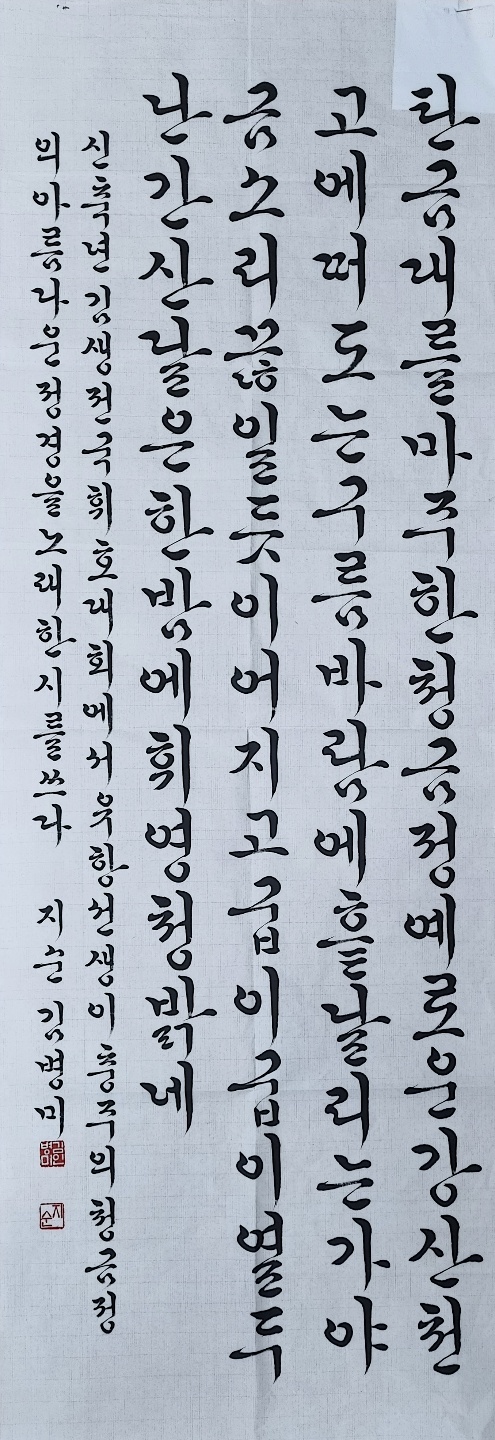 탄금대를마주한청금정예로운강산천
고에떠도는구름바람에흩날리는가야
금소리끓일듯이어지고굽이굽이열두
난간신날은한밤에휘영청밝네
신축년김생전국휘호대회에서우항선생이충주의청금정
의아름다운정경을노래한시를쓰다 지순김병미
지순